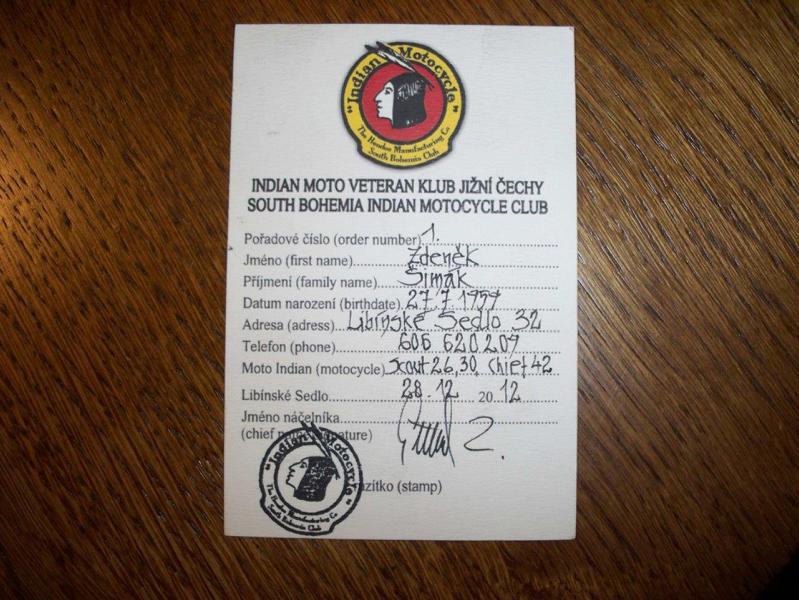 "Indian Motocycle"
The Hendee Manufacturing Co
South Bohemia Club
INDIAN MOTO VETERAN KLUB JIŽNÍ ČECHY
SOUTH BOHEMIA INDIAN MOTOCYCLE CLUB
Pořadové číslo (order number) 1.
Jméno (first name) Zdeněk
Příjmení (family name) Šimák
Datum narození (birthdate) 27.7.1959
Adresa (adress) Libínské Sedlo 32
Telefon (phone) 606 620 209
Moto Indian (motocycle) Scout 26, 30, chief 42
Libínské Sedlo 28.12 2012
Jméno náčelníka
(chief
"Indian Motocycle"
The Hendee Manufacturing Co
South Bohemia Club
(stamp)